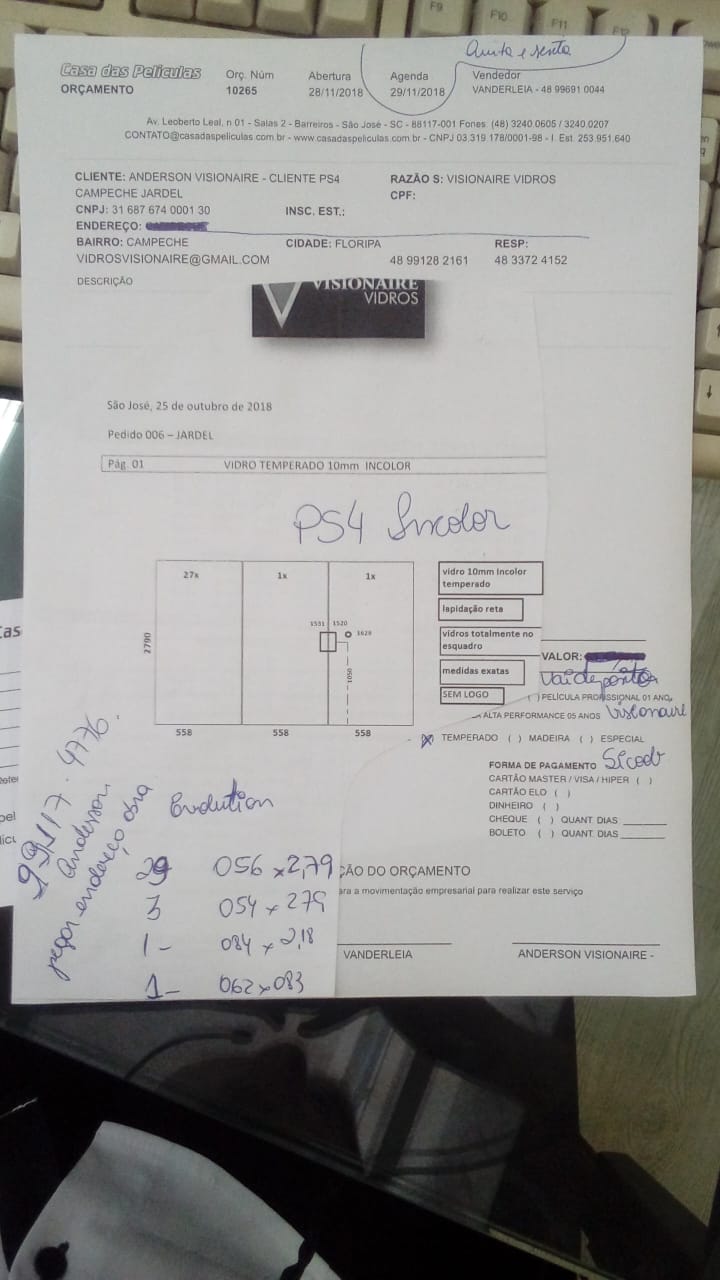 Quinta e sexta
Casa das Películas Orç. Núm Abertura Agenda Vendedor
ORÇAMENTO 10265 28/11/2018 29/11/2018 VANDERLEIA - 48 99691 0044
Av. Leoberto Leal, n 01 - Salas 2 - Barreiros - São José - SC - 88117-001 Fones: (48) 3240.0605 / 3240.0207
CONTATO@casadaspeliculas.com.br - www.casadaspeliculas.com.br - CNPJ 03.319.178/0001-98 - I. Est. 253.951.640
CLIENTE: ANDERSON VISIONAIRE - CLIENTE PS4 RAZÃO S: VISIONAIRE VIDROS
CAMPECHE JARDEL CPF:
CNPJ: 31 687 674 0001 30 INSC. EST.:
ENDEREÇO:
BAIRRO: CAMPECHE CIDADE: FLORIPA RESP:
VIDROSVISIONAIRE@GMAIL.COM 48 99128 2161 48 3372 4152
DESCRIÇÃO
VISIONAIRE
VIDROS
São José, 25 de outubro de 2018
Pedido 006 – JARDEL
Pág. 01 VIDRO TEMPERADO 10mm INCOLOR
PS4 Incolor
27x 1x 1x
vidro 10mm Incolor
temperado
lapidação reta
vidros totalmente no
esquadro
medidas exatas
SEM LOGO
2790
1531 1520
1620
1050
558 558 558
VALOR:
Vai depositar
( ) PELÍCULA PROFISSIONAL 01 ANO,
ALTA PERFORMANCE 05 ANOS Visionaire
TEMPERADO ( ) MADEIRA ( ) ESPECIAL
FORMA DE PAGAMENTO Sicoob
CARTÃO MASTER / VISA / HIPER ( )
CARTÃO ELO ( )
DINHEIRO ( )
CHEQUE ( ) QUANT. DIAS
BOLETO ( ) QUANT. DIAS
99117.4776.
Anderson
pegar endereço obra
Evolution
29 056 x 2,79
3 054 x 279
1- 084 x 2,18
1- 062x083
ÇÃO DO ORÇAMENTO
ara a movimentação empresarial para realizar este serviço
VANDERLEIA ANDERSON VISIONAIRE -